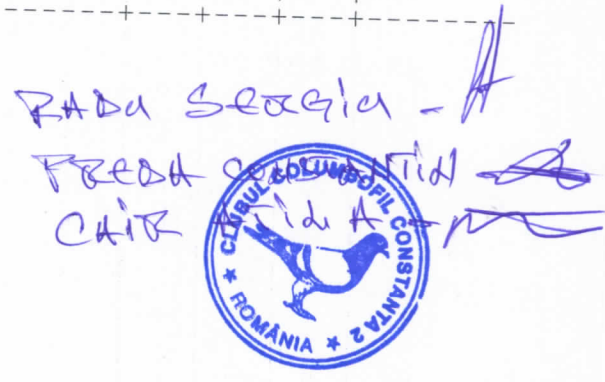 RADU SERGIU -
PREDA CONSTANTIN -
ATILA -
CLUBUL COLUMBOFIL CONSTANTA 2
* ROMÂNIA *